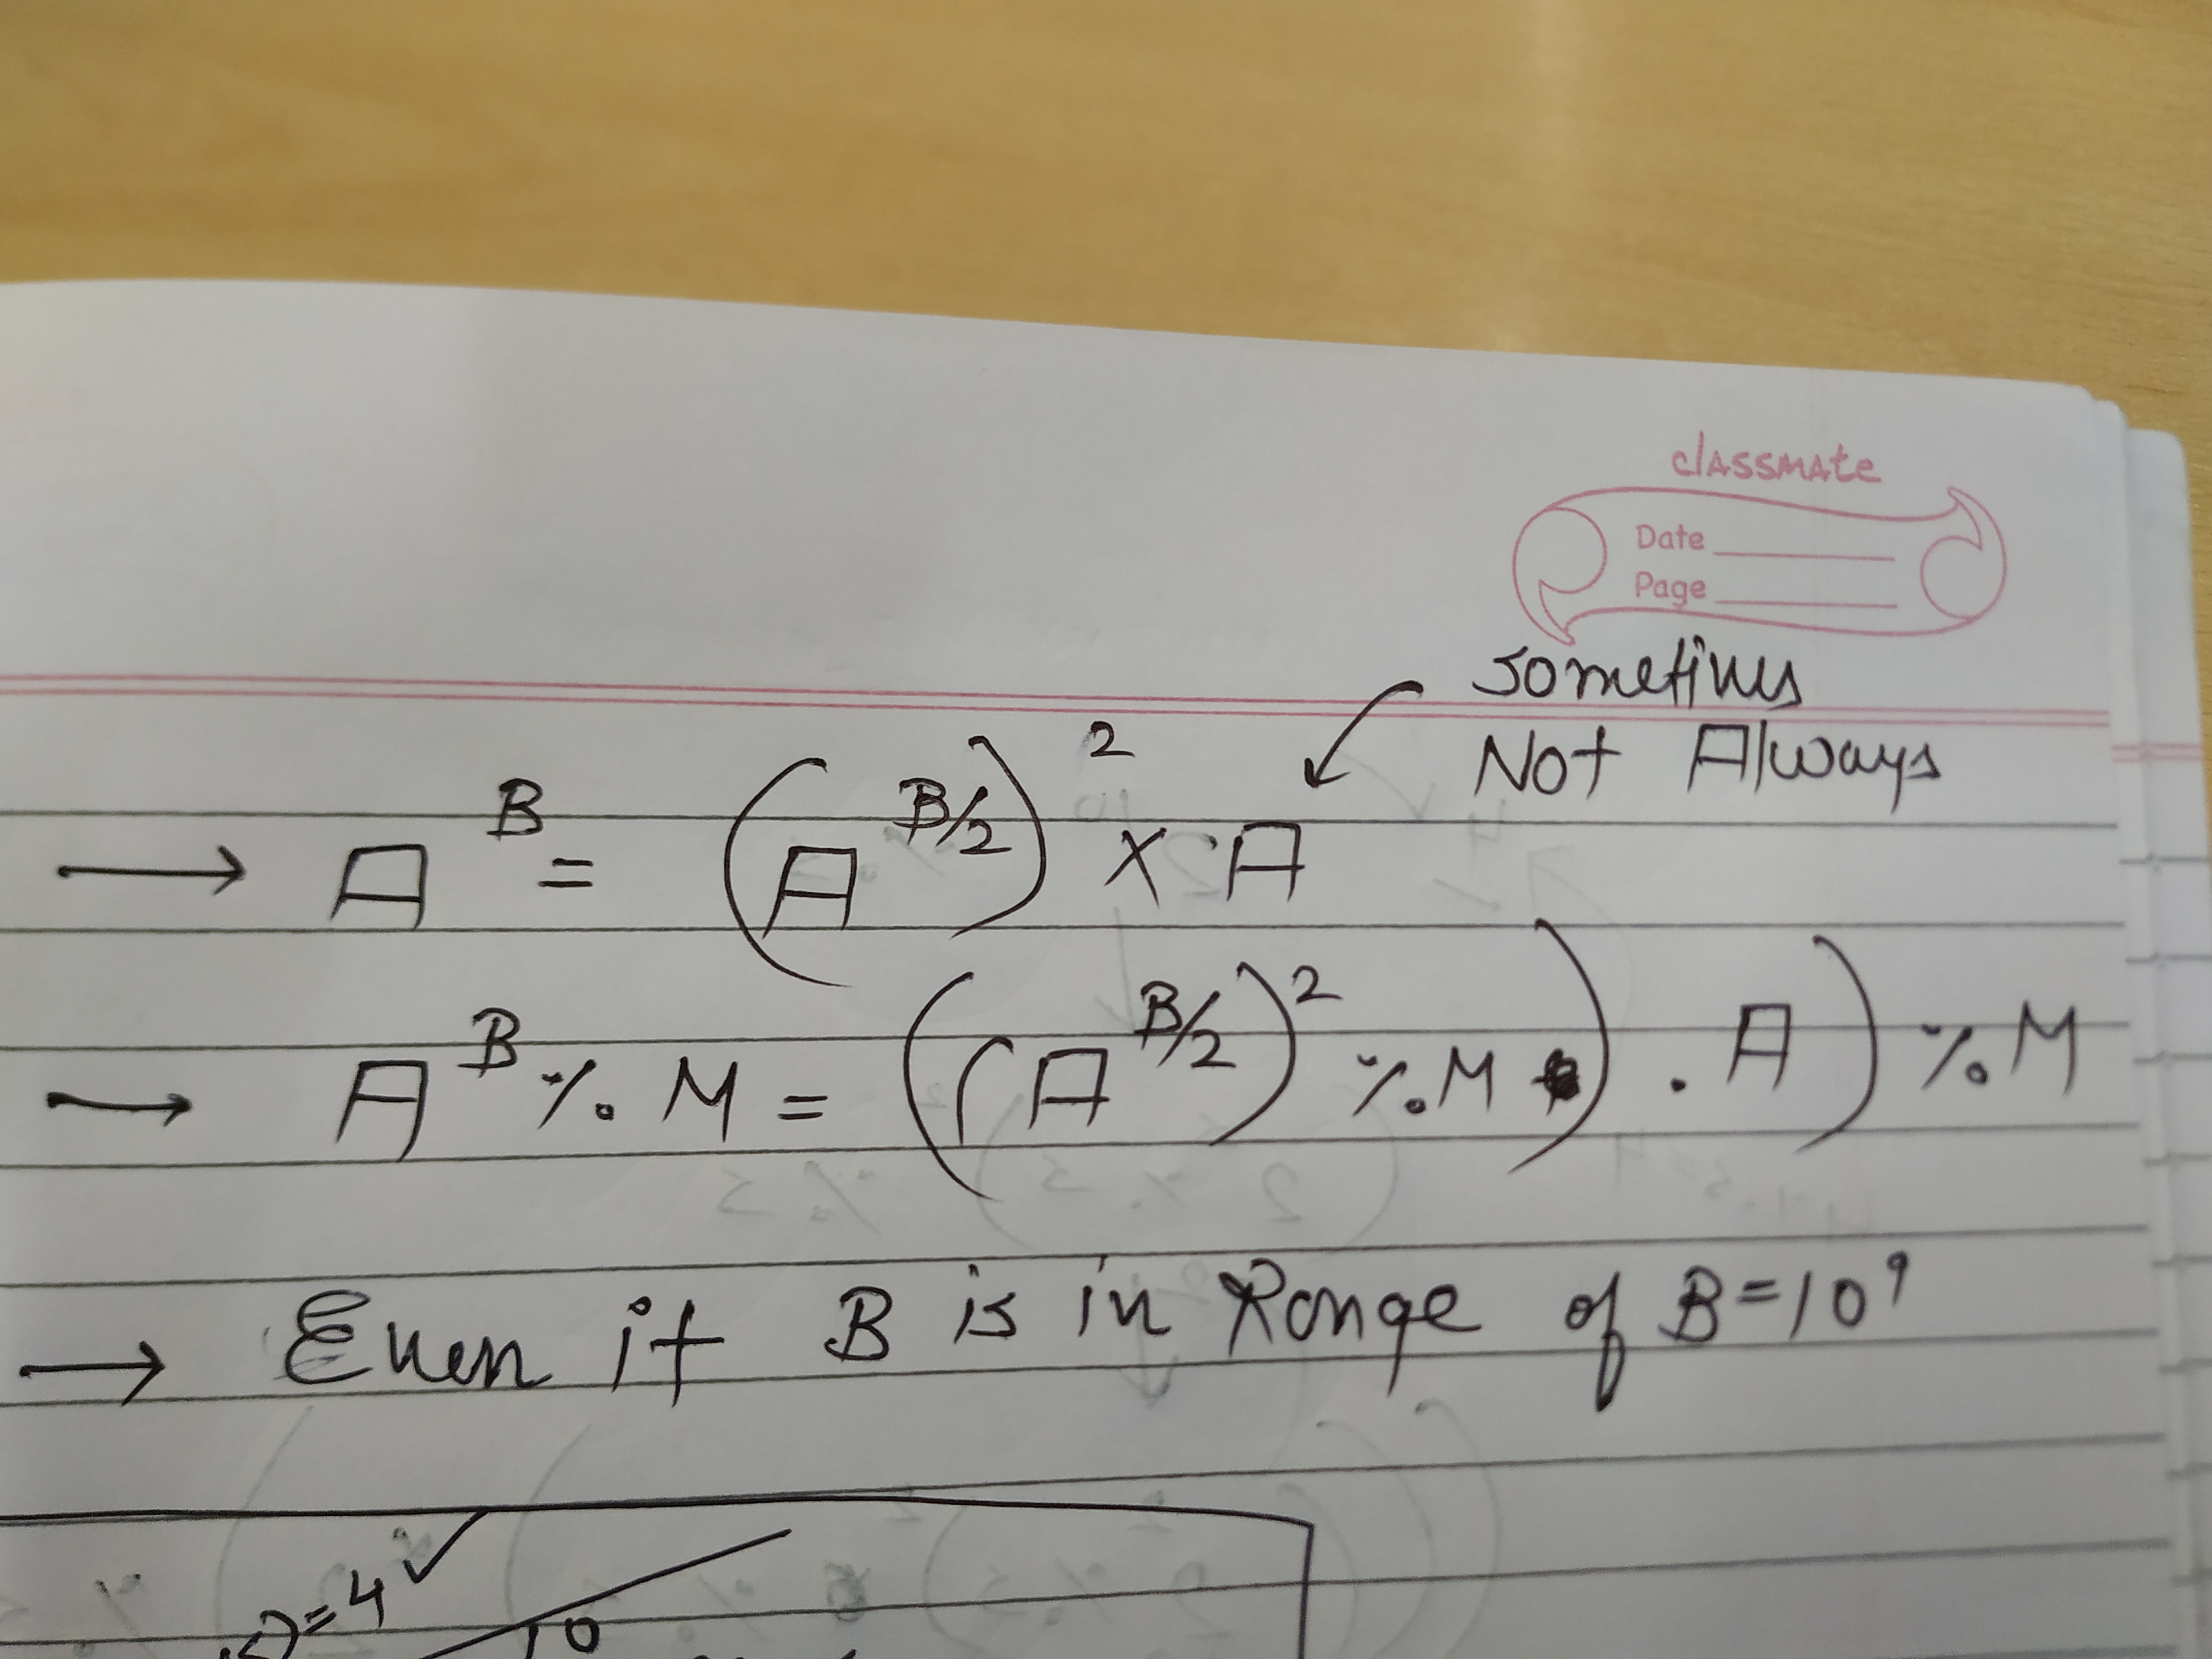 classmate
Date
Page
sometimes
Not Always
→ A^B = (A^{B/2})^2 × A
→ A^B % M = ((A^{B/2})^2 % M) . A) % M
→ Even if B is in Range of B=10^9
)=4 ✓
10